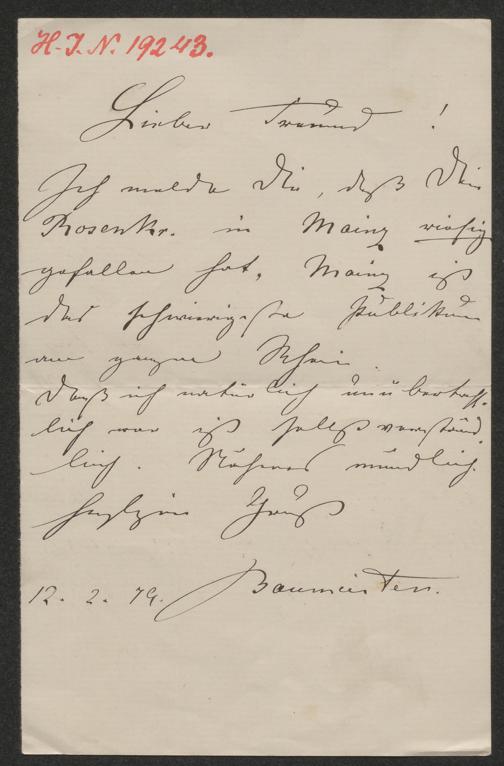 H. I. N. 19243.
Lieber Freund!
Ich melde Dir, daß Dein
Rosenkr. in Mainz riesig
gefallen hat, Mainz ist
das schwierigste Publikum
am ganzen Rhein.
Daß ich natürlich unübertreff-
lich war ist selbstverständ-
lich. Näheres mündlich.
Herzlichen Gruß
12. 2. 79. Baumeister.